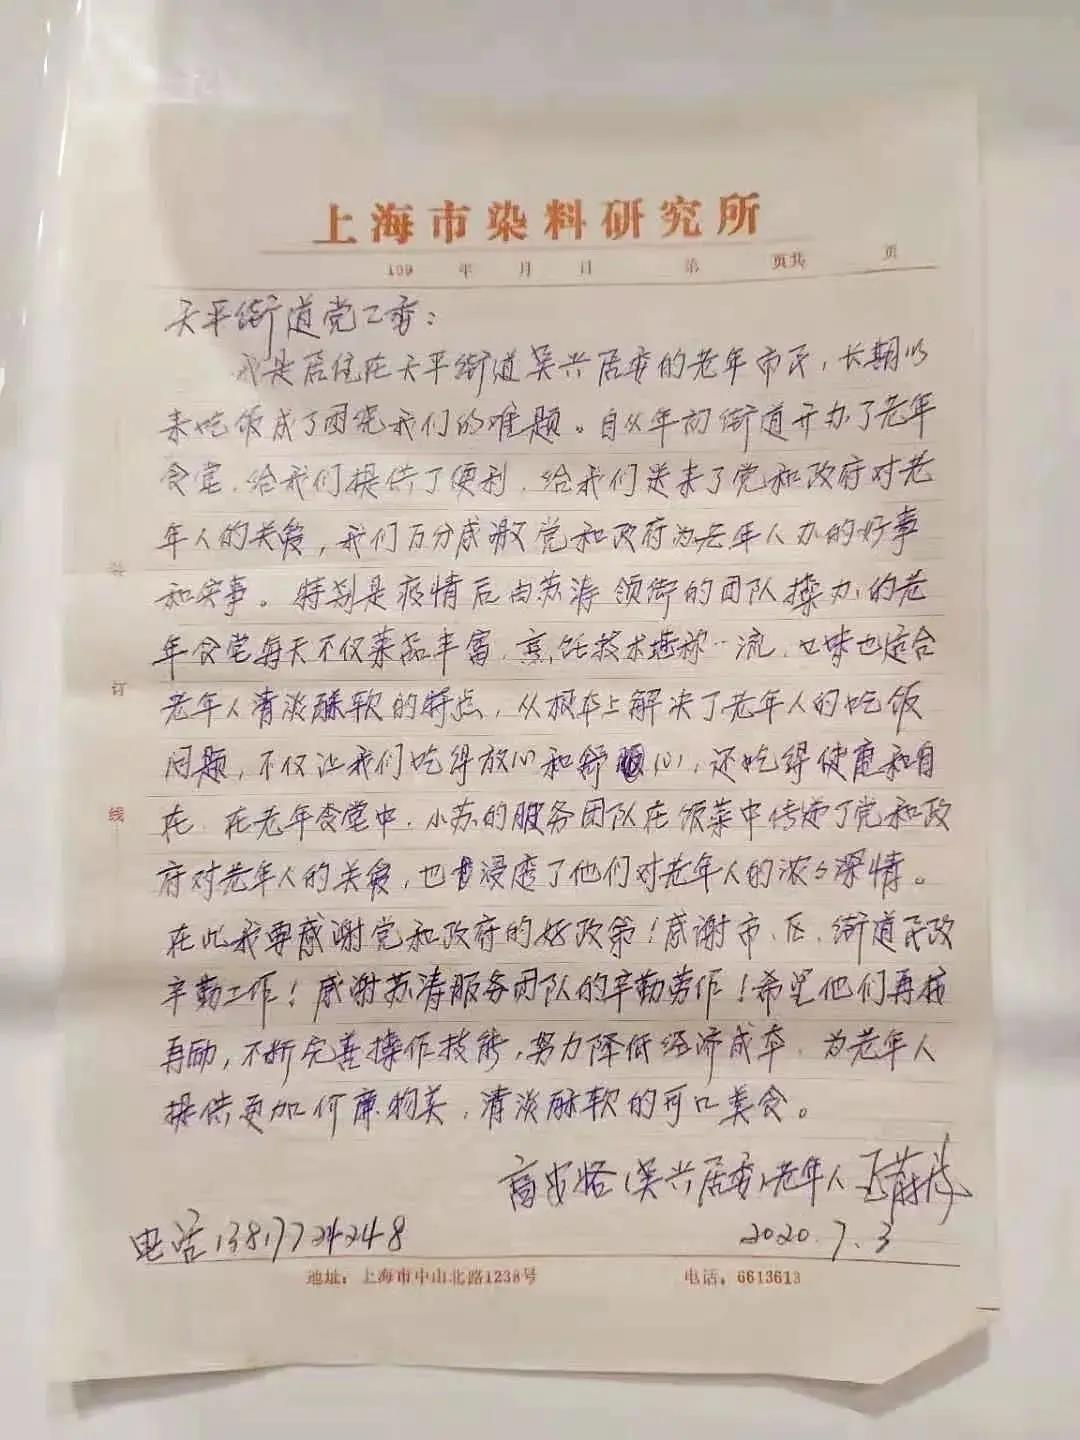 上海市染料研究所
199 年 月 日 第 页共 页
天平街道党工委：
我是居住在天平街道吴兴居委的老年市民，长期以
来吃饭成了困绕我们的难题。自从年初街道开办了老年
食堂，给我们提供了便利，给我们送来了党和政府对老
年人的关爱，我们万分感激党和政府为老年人办的好事
和实事。特别是疫情后由苏涛领衔的团队操办的老
年食堂每天不仅菜品丰富，烹饪技术堪称一流，口味也适合
老年人清淡酥软的特点，从根本上解决了老年人的吃饭
问题，不仅让我们吃得放心和舒心，还吃得健康和自
在。在老年食堂中，小苏的服务团队在饭菜中传递了党和政
府对老年人的关爱，也浸透了他们对老年人的浓浓深情。
在此我要感谢党和政府的好政策！感谢市、区、街道民政
辛勤工作！感谢苏涛服务团队的辛勤劳作！希望他们再接
再励，不断完善操作技能，努力降低经济成本，为老年人
提供更加价廉物美，清淡酥软的可口美食。
高安路（吴兴居委）老年人
电话：13817724248 2020.7.3
地址：上海市中山北路1238号 电话：6613613
装
订
线